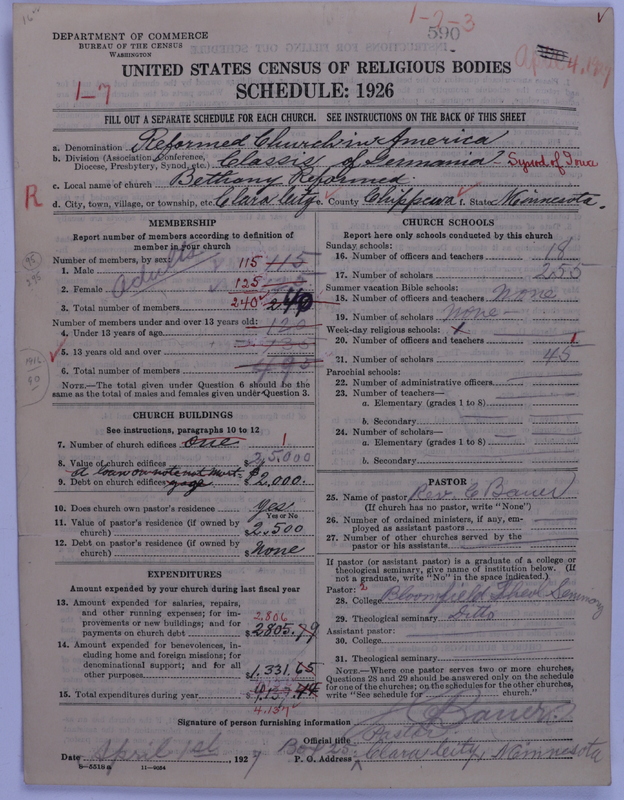 1-2-3
590
DEPARTMENT OF COMMERCE
BUREAU OF THE CENSUS
WASHINGTON
UNITED STATES CENSUS OF RELIGIOUS BODIES
SCHEDULE: 1926
1-7
FILL OUT A SEPARATE SCHEDULE FOR EACH CHURCH. SEE INSTRUCTIONS ON THE BACK OF THIS SHEET
a. Denomination Reformed Church in America
b. Division (Association, Conference, Diocese, Presbytery, Synod, etc.) Classis of Germania - Synod of Iowa
c. Local name of church Bethany Reformed
R
d. City, town, village, or township, etc. Clara City e. County Chippewa f. State Minnesota.
MEMBERSHIP
Report number of members according to definition of member in your church
Number of members, by sex: Adults
1. Male 115 115
2. Female 125
3. Total number of members 240 240
Number of members under and over 13 years old:
4. Under 13 years of age 120
5. 13 years old and over
6. Total number of members
NOTE.—The total given under Question 6 should be the same as the total of males and females given under Question 3.
CHURCH BUILDINGS
See instructions, paragraphs 10 to 12
7. Number of church edifices one 1
8. Value of church edifices $25,000
a loan on note not mort
9. Debt on church edifices gage $2,000.
10. Does church own pastor's residence? Yes
Yes or No
11. Value of pastor's residence (if owned by church) $2,500
12. Debt on pastor's residence (if owned by church) $None
EXPENDITURES
Amount expended by your church during last fiscal year
13. Amount expended for salaries, repairs, and other running expenses; for improvements or new buildings; and for payments on church debt $2805.79
2.806
14. Amount expended for benevolences, including home and foreign missions; for denominational support; and for all other purposes $1,331.65
15. Total expenditures during year $4,137.44
4.137
CHURCH SCHOOLS
Report here only schools conducted by this church
Sunday schools:
16. Number of officers and teachers 18
17. Number of scholars 255
Summer vacation Bible schools:
18. Number of officers and teachers None
19. Number of scholars None
Week-day religious schools:
20. Number of officers and teachers 1
21. Number of scholars 45
Parochial schools:
22. Number of administrative officers
23. Number of teachers—
a. Elementary (grades 1 to 8)
b. Secondary
24. Number of scholars—
a. Elementary (grades 1 to 8)
b. Secondary
PASTOR
25. Name of pastor Rev. C Bauer
(If church has no pastor, write "None")
26. Number of ordained ministers, if any, employed as assistant pastors
27. Number of other churches served by the pastor or his assistants
If pastor (or assistant pastor) is a graduate of a college or theological seminary, give name of institution below. (If not a graduate, write "No" in the space indicated.)
Pastor: 2
28. College Bloomfield Theol Seminary
29. Theological seminary Ditto
Assistant pastor:
30. College
31. Theological seminary
NOTE.—Where one pastor serves two or more churches, Questions 28 and 29 should be answered only on the schedule for one of the churches; on the schedules for the other churches, write "See schedule for church."
Signature of person furnishing information C Bauer
Official title Pastor
Date April 1st, 1927 P. O. Address Box 25 Clara City, Minnesota
8—5518a 11—9084